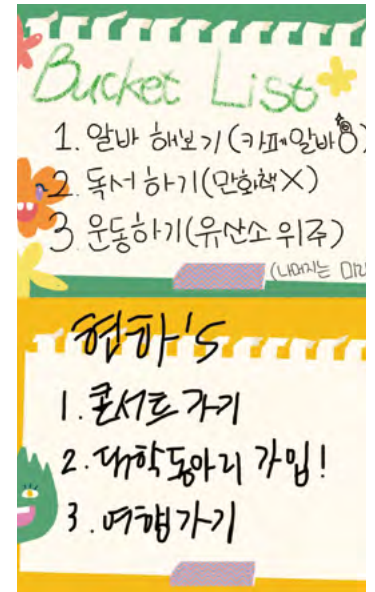 Bucket List
1. 알바 해보기(카페알바)
2. 독서하기(만화책X)
3. 운동하기(유산소 위주)
(나머지는
현하's
1. 콘서트 가기
2. 대학동아리 가입!
3. 여행가기